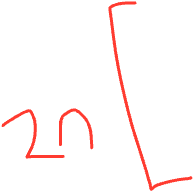 2n [